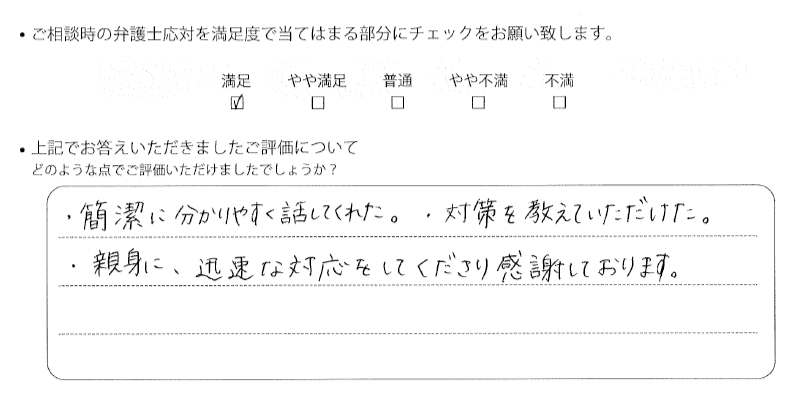 ・ご相談時の弁護士応対を満足度で当てはまる部分にチェックをお願い致します。
満足 やや満足 普通 やや不満 不満
☑ ☐ ☐ ☐ ☐
・上記でお答えいただきましたご評価について
どのような点でご評価いただけましたでしょうか？
・簡潔に分かりやすく話してくれた。・対策を教えていただけた。
・親身に、迅速な対応をしてくださり感謝しております。